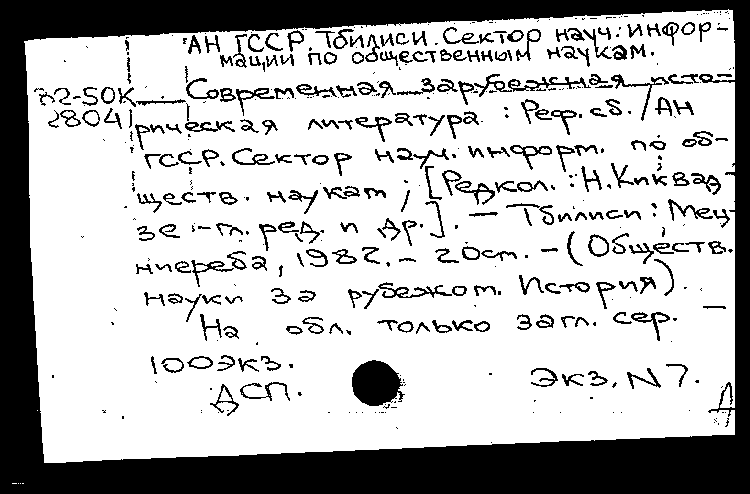 АН ГССР. Тбилиси. Сектор науч. инфор-
мации по общественным наукам.
82-50К Современная зарубежная исто-
2804 рическая литература : Реф. сб. / АН
ГССР. Сектор науч. информ. по об-
ществ. наукам ; [Редкол. : Н. Киквад-
зе -гл. ред. и др.]. — Тбилиси : Мец-
ниереба, 1982. - 20см. - (Обществ.
науки за рубежом. История).
На обл. только загл. сер. —
100экз.
ДСП. Экз. N 7.